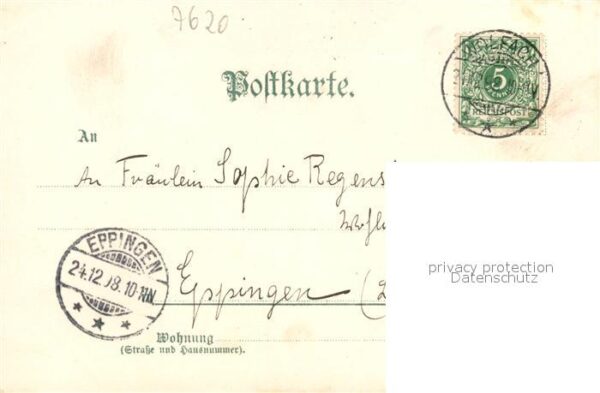 7620
WOLFACH
5
REICHSPOST
Postkarte.
An
An Fräulein Sophie Regens
Wohl
privacy protection
Datenschutz
EPPINGEN
24.12.98.10-11N
Eppingen (
Wohnung
(Straße und Hausnummer).